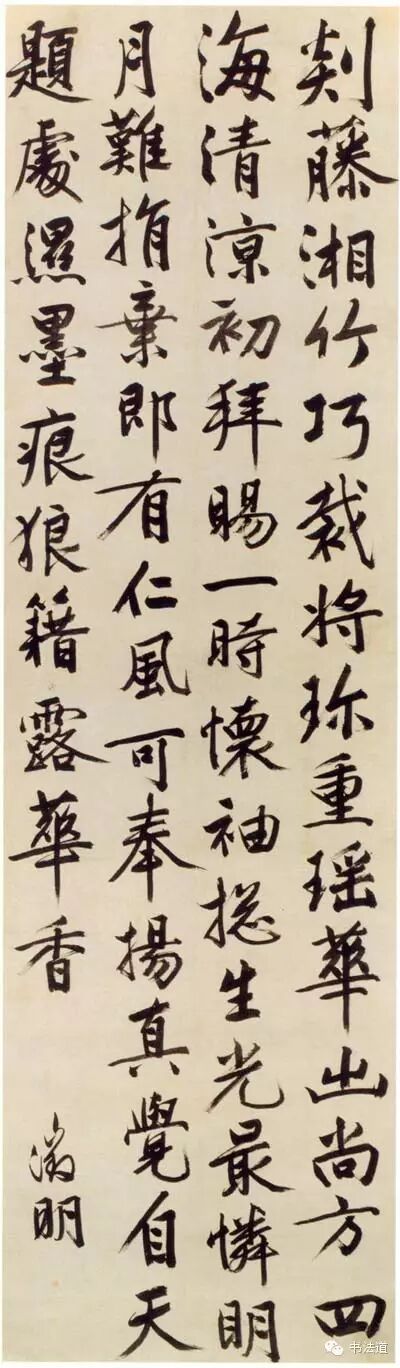 剡藤湘竹巧裁将珎重瑶華出尚方四
海清凉初拜賜一時懷袖捴生光最憐明
月難捐棄即有仁風可奉揚真覺自天
題處濕墨痕狼籍露華香
徵明
书法道